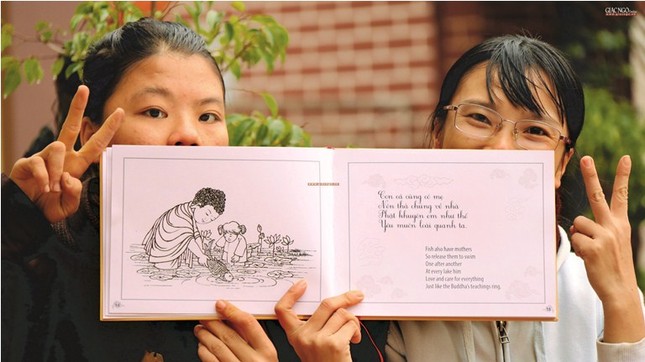 GIÁC NGỘ
Con cá vàng có mẹ
Nên thả chúng về nhà
Phật khuyên em như thế
Yêu muôn loài quanh ta.
Fish also have mothers
So release them to swim
One after another
At every lake brim
Love and care for everything
Just like the Buddha's teachings ring.